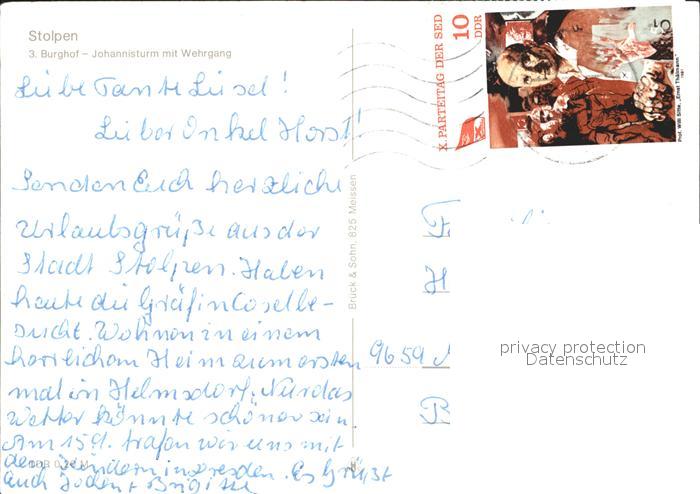 Stolpen
3. Burghof – Johannisturm mit Wehrgang
Liebe Tante Liesel!
Lieber Onkel Horst!
Senden Euch herzliche
Urlaubsgrüße aus der
Stadt Stolpen. Haben
heute die Gräfin Cosel be-
sucht. Wohnen in einem
herrlichen Heim
mal in Helmsdorf. Nur das
Wetter könnte schöner sein.
Am 15.9. trafen wir uns mit
den Kindern in Dresden. Es grüßt
Euch Jochen + Brigitte
Brück & Sohn, 825 Meissen
X. PARTEITAG DER SED
10
DDR
Prof. Willi Sitte, „Ernst Thälmann"
F
H
9659
B
privacy protection
Datenschutz